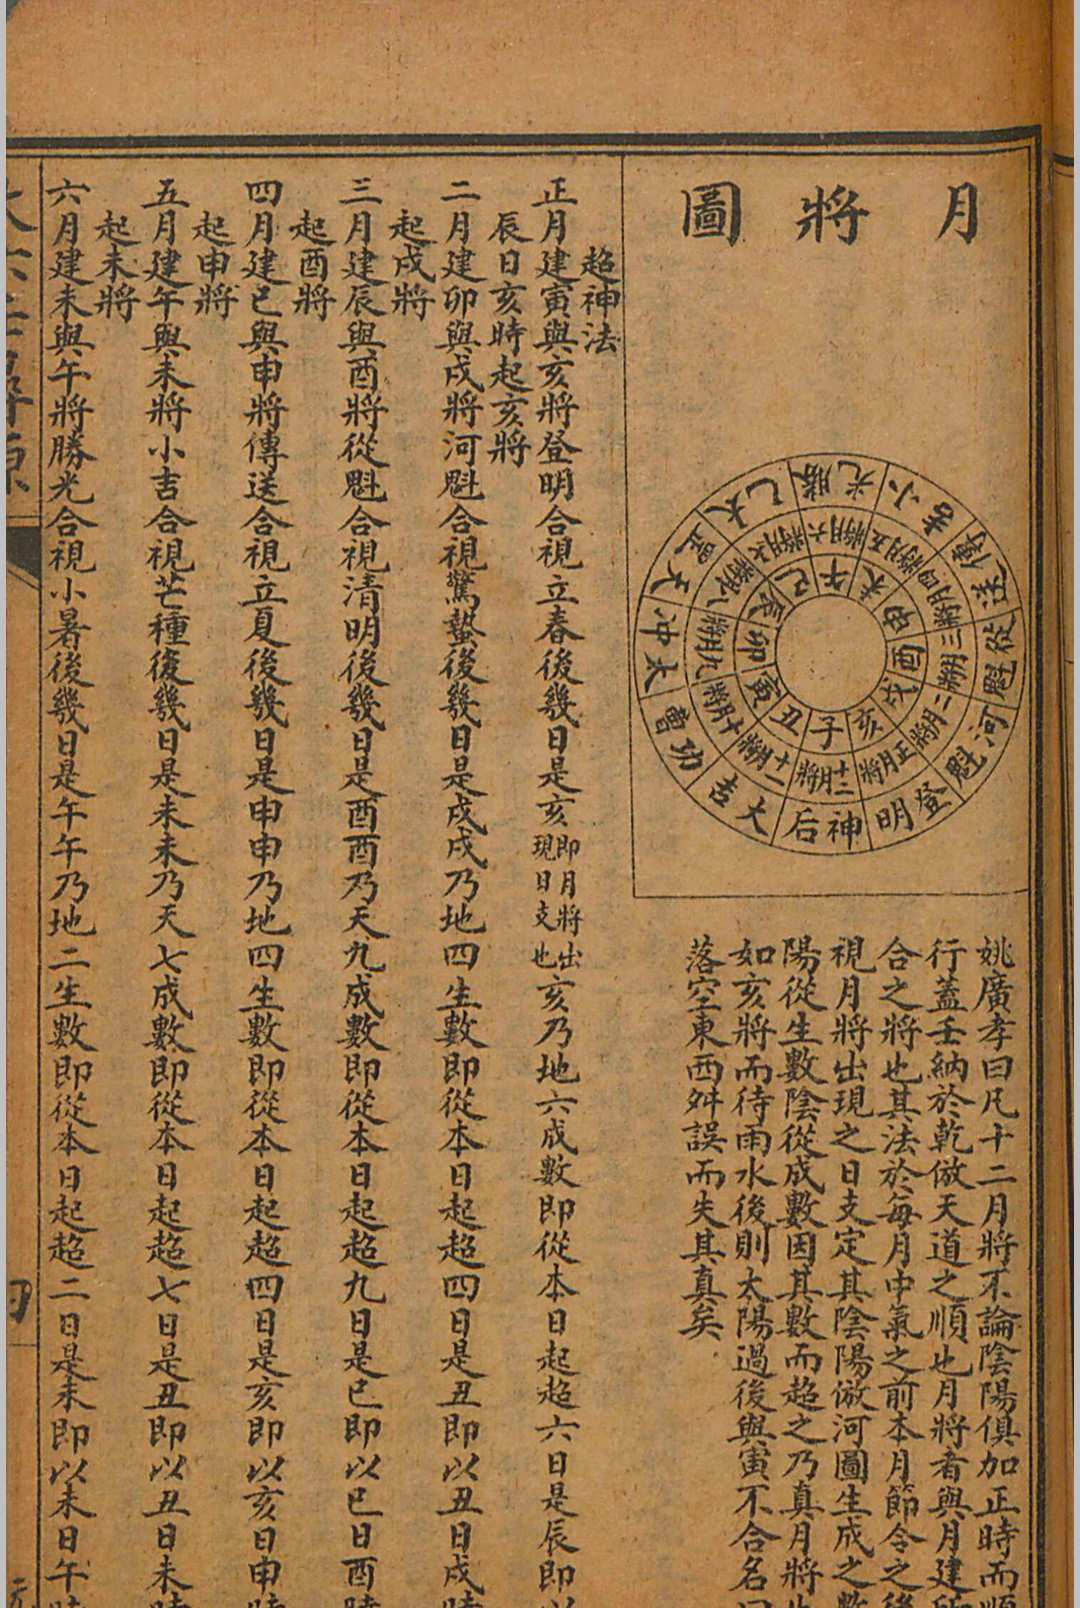 月將圖
小吉 勝光 太乙 天罡 太冲 功曹 大吉 神后 登明 河魁 從魁 傳送
五月將 六月將 七月將 八月將 九月將 十月將 十一月將 十二月將 正月將 二月將 三月將 四月將
未 午 巳 辰 卯 寅 丑 子 亥 戌 酉 申
姚廣孝曰凡十二月將不論陰陽俱加正時而順
行蓋壬納於乾倣天道之順也月將者與月建所
合之將也其法於每月中氣之前本月節令之後
視月將出現之日支定其陰陽倣河圖生成之數
陽從生數陰從成數因其數而超之乃真月將也
如亥將而待雨水後則太陽過後與寅不合名曰
落空東西舛誤而失其真矣
超神法
正月建寅與亥將登明合視立春後幾日是亥即月將出現日支也亥乃地六成數即從本日起超六日是辰即以
辰日亥時起亥將
二月建卯與戌將河魁合視驚蟄後幾日是戌戌乃地四生數即從本日起超四日是丑即以丑日戌時
起戌將
三月建辰與酉將從魁合視清明後幾日是酉酉乃天九成數即從本日起超九日是巳即以巳日酉時
起酉將
四月建巳與申將傳送合視立夏後幾日是申申乃地四生數即從本日起超四日是亥即以亥日申時
起申將
五月建午與未將小吉合視芒種後幾日是未未乃天七成數即從本日起超七日是丑即以丑日未時
起未將
六月建未與午將勝光合視小暑後幾日是午午乃地二生數即從本日起超二日是未即以未日午時